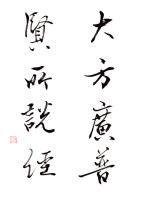 大方廣普
賢所說經